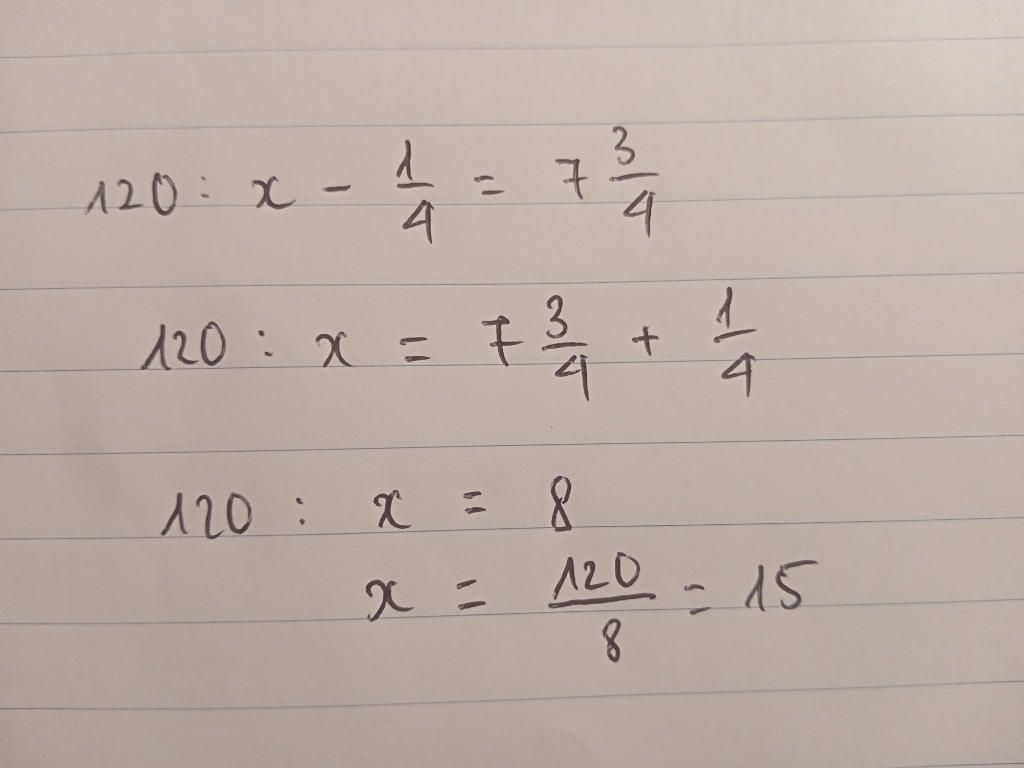 120 : x - 1/4 = 7 3/4
120 : x = 7 3/4 + 1/4
120 : x = 8
x = 120/8 = 15